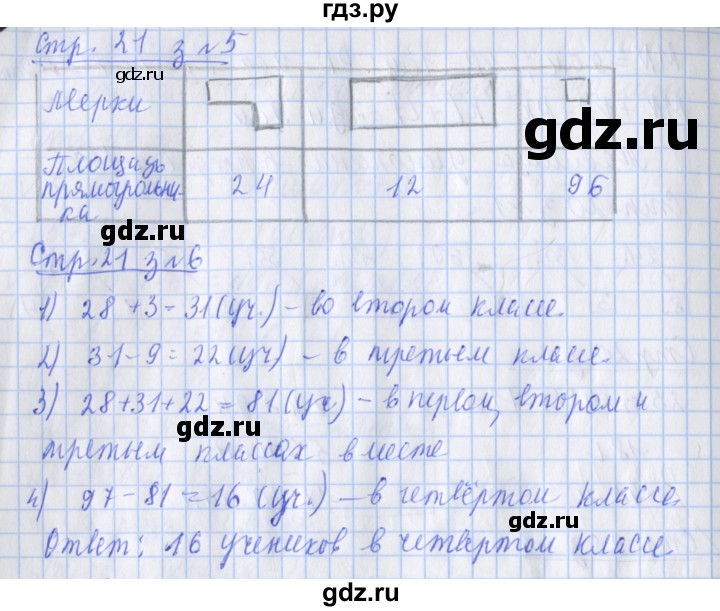 гдз.ру
Стр. 21 з №5
gdz.ru
Мерки
gdz.ru
Площадь прямоугольника
24
12
96
gdz.ru
Стр. 21 з №6
1) 28+3=31(уч.) – во втором классе.
2) 31–9=22(уч) – в третьем классе.
3) 28+31+22=81(уч) – в первом, втором и
gdz.ru
третьем классах вместе
4) 97–81=16(уч.) – в четвёртом классе.
gdz.ru
Ответ: 16 учеников в четвертом классе
gdz.ru